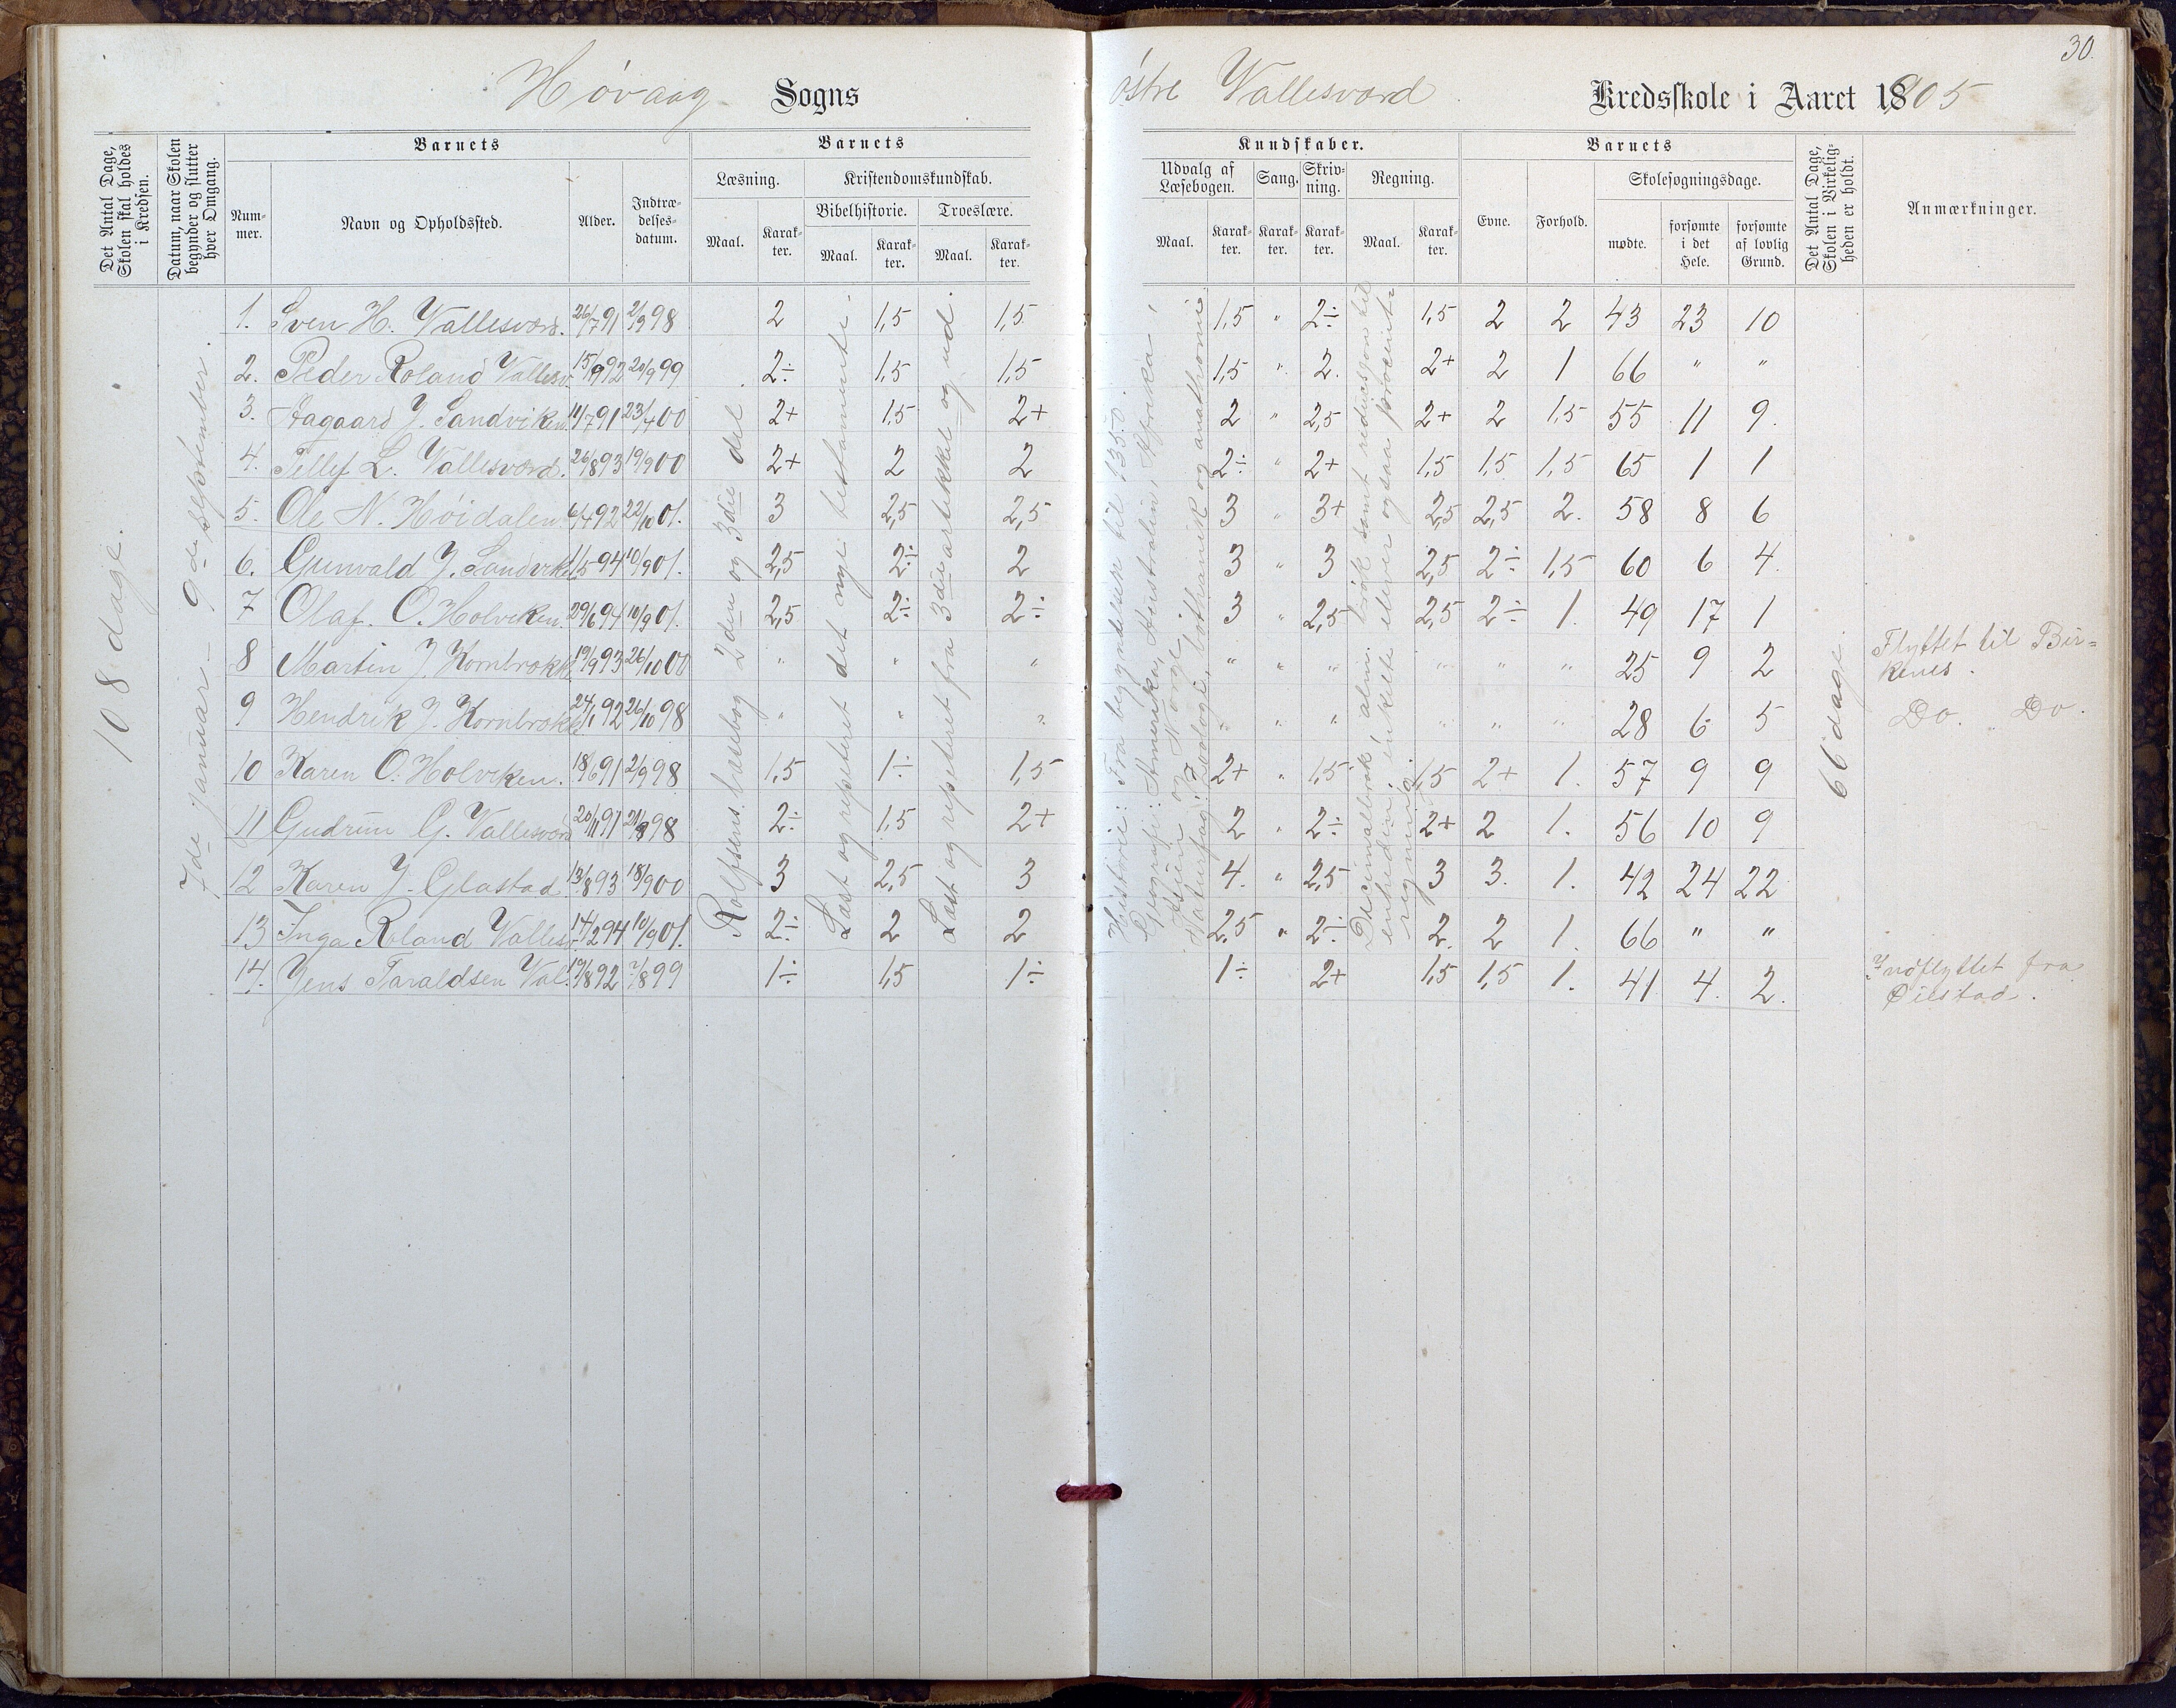 30.
Høvaag Sogns
østre Vallesværd Kredsskole i Aaret 1905
Det Antal Dage, Skolen skal holdes i Kredsen.
Datum, naar Skolen begynder og slutter hver Omgang.
Barnets
Barnets
Kundskaber.
Barnets
Det Antal Dage, Skolen i Virkeligheden er holdt.
Anmærkninger.
Nummer.
Navn og Opholdssted.
Alder.
Indtrædelsesdatum.
Læsning.
Kristendomskundskab.
Bibelhistorie.
Troeslære.
Maal. Karakter. Maal. Karakter. Maal. Karakter.
Udvalg af Læsebogen.
Sang.
Skrivning.
Regning.
Evne.
Forhold.
Skolesøgningsdage.
Maal. Karakter. Karakter. Karakter. Maal. Karakter.
mødte.
forsømte i det Hele.
forsømte af lovlig Grund.
108 dage.
7de januar - 9de september.
Rolfsens læsebog 2den og 3die del
Læst og repeteret det nye testamente.
Læst og repeteret fra 3die artikkel og ud.
Historie: Fra begyndelsen til 1350.
Geografi: Amerika, Australien, Afrika,
Asien og Norge.
Naturfag: Zoologi, bothanik og anathomi.
Decimalbrøk, alm. brøk samt reduksjon til
enheden; enkelte elever ogsaa procent-
regning.
66 dage.
1. Sven H. Vallesværd. 26/7 91 2/9 98 2 1,5 1,5 1,5 " 2÷ 1,5 2 2 43 23 10
2. Peder Roland Vallesv. 15/9 92 20/9 99 2÷ 1,5 1,5 1,5 " 2. 2+ 2 1 66 " "
3. Aagaard J. Sandviken. 11/7 91 23/4 00 2+ 1,5 2+ 2 " 2,5 2+ 2 1,5 55 11 9.
4. Tellef L. Vallesværd. 26/8 93 19/9 00 2+ 2 2 2÷ " 2+ 1,5 1,5 1,5 65 1 1
5. Ole N. Høidalen 6/4 92 22/10 01. 3 2,5 2,5 3 " 3+ 2,5 2,5 2. 58 8 6
6. Gunvald J. Sandvik. 11/5 94 10/9 01. 2,5 2÷ 2 3 3 2,5 2÷ 1,5 60 6 4.
7 Olaf. O. Holviken. 29/6 94 10/9 01. 2,5 2÷ 2÷ 3 " 2,5 2,5 2÷ 1. 49 17 1
8 Martin J. Kornbrokk. 19/9 93 26/10 00 " " " " " " " " " 25 9 2 Flyttet til Bir-
kenes.
9 Hendrik J. Kornbrokk. 24/1 92 26/10 98 " " " " " " " " " 28 6 5 Do. Do.
10 Karen O. Holviken. 18/6 91 2/9 98 1,5 1÷ 1,5 2+ " 1,5 1,5 2+ 1. 57 9 9
11 Gudrun G. Vallesværd 20/11 91 21/8 98 2÷ 1,5 2+ 2 " 2÷ 2+ 2 1. 56 10 9
12 Karen J. Glastad. 13/8 93 18/9 00 3 2,5 3 4. " 2,5 3 3. 1. 42 24 22
13 Inga Roland Vallesv. 14/2 94 10/9 01. 2÷ 2 2 2,5 " 2÷ 2. 2 1. 66 " "
14. Jens Taraldsen Val. 19/8 92 7/8 99 1÷ 1,5 1÷ 1÷ 2+ 1,5 1,5 1. 41 4. 2. Indflyttet fra
Øiestad.